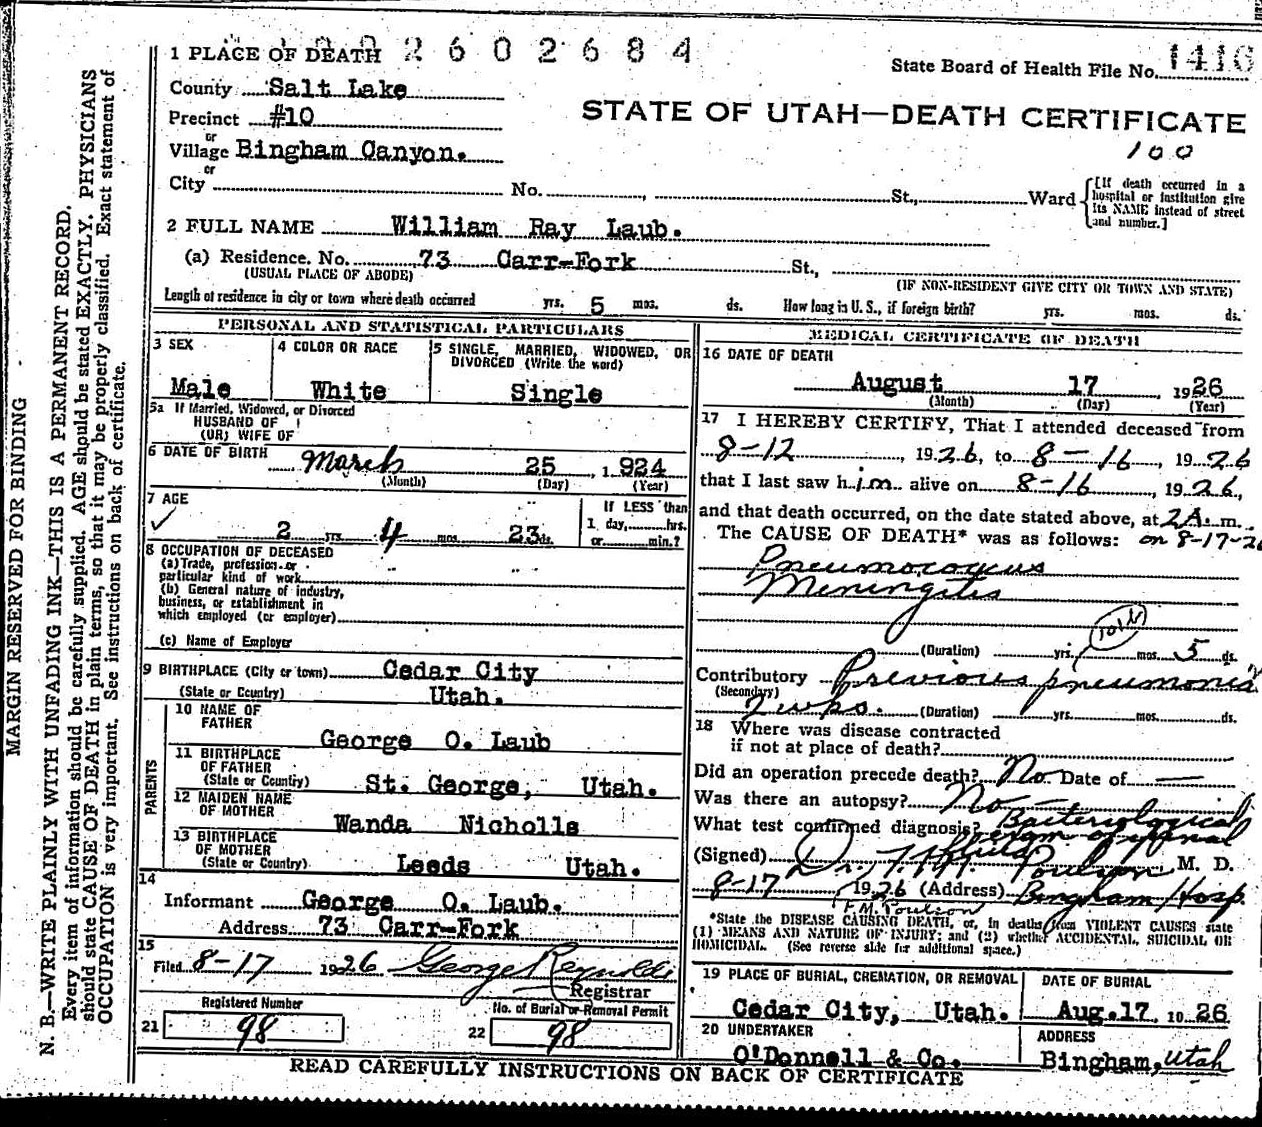 2602684
1 PLACE OF DEATH
State Board of Health File No. 1416
County Salt Lake
STATE OF UTAH—DEATH CERTIFICATE
Precinct #10
100
or
Village Bingham Canyon.
or
City No. , St., Ward
[If death occurred in a hospital or institution give its NAME instead of street and number.]
2 FULL NAME William Ray Laub.
(a) Residence. No. 73 Carr-Fork St.,
(USUAL PLACE OF ABODE) (IF NON-RESIDENT GIVE CITY OR TOWN AND STATE)
Length of residence in city or town where death occurred yrs. 5 mos. ds. How long in U. S., if foreign birth? yrs. mos. ds.
PERSONAL AND STATISTICAL PARTICULARS
3 SEX
Male
4 COLOR OR RACE
White
5 SINGLE, MARRIED, WIDOWED, OR
DIVORCED (Write the word)
Single
5a If Married, Widowed, or Divorced
HUSBAND OF
(OR) WIFE OF
6 DATE OF BIRTH March 25 , 1924
(Month) (Day) (Year)
7 AGE
2 yrs. 4 mos. 23 ds.
If LESS than
1 day, hrs.
or min.?
8 OCCUPATION OF DECEASED
(a) Trade, profession or
particular kind of work
(b) General nature of industry,
business, or establishment in
which employed (or employer)
(c) Name of Employer
9 BIRTHPLACE (City or town) Cedar City
(State or Country) Utah.
PARENTS
10 NAME OF
FATHER George O. Laub
11 BIRTHPLACE
OF FATHER
(State or Country) St. George, Utah.
12 MAIDEN NAME
OF MOTHER Wanda Nicholls
13 BIRTHPLACE
OF MOTHER
(State or Country) Leeds Utah.
14
Informant George O. Laub.
Address 73 Carr-Fork
15
Filed 8-17 1926 George Reynolds
Registrar
Registered Number
21 98
No. of Burial or Removal Permit
22 98
MEDICAL CERTIFICATE OF DEATH
16 DATE OF DEATH
August 17 , 1926
(Month) (Day) (Year)
17 I HEREBY CERTIFY, That I attended deceased from
8-12 , 1926, to 8-16 , 1926
that I last saw him alive on 8-16 , 1926,
and that death occurred, on the date stated above, at 2A. m.
The CAUSE OF DEATH* was as follows: on 8-17-26
Pneumococcus
Meningitis
(Duration) yrs. mos. 5 ds.
Contributory Previous pneumonia
(Secondary)
2 wks. (Duration) yrs. mos. ds.
18 Where was disease contracted
if not at place of death?
Did an operation precede death? No Date of —
Was there an autopsy? No
What test confirmed diagnosis? Bacteriological
exam of spinal
fluid
(Signed) Dr. F. M. Poulson M. D.
8-17 , 1926 (Address) Bingham Hosp.
F.M. Poulson
*State the DISEASE CAUSING DEATH, or, in deaths from VIOLENT CAUSES state
(1) MEANS AND NATURE OF INJURY; and (2) whether ACCIDENTAL, SUICIDAL OR
HOMICIDAL. (See reverse side for additional space.)
19 PLACE OF BURIAL, CREMATION, OR REMOVAL
Cedar City, Utah.
DATE OF BURIAL
Aug.17, 1926
20 UNDERTAKER
O'Donnell & Co.
ADDRESS
Bingham, Utah
READ CAREFULLY INSTRUCTIONS ON BACK OF CERTIFICATE
MARGIN RESERVED FOR BINDING
N. B.—WRITE PLAINLY WITH UNFADING INK—THIS IS A PERMANENT RECORD.
Every item of information should be carefully supplied. AGE should be stated EXACTLY. PHYSICIANS
should state CAUSE OF DEATH in plain terms, so that it may be properly classified. Exact statement of
OCCUPATION is very important. See instructions on back of certificate.